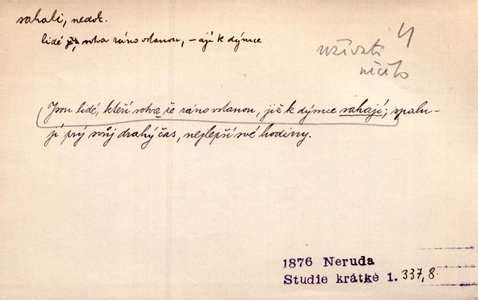 sahati, nedok.
lidé již, sotva ráno vstanou, – ají k dýmce
4
užívati
něčeho
Jsou lidé, kteří sotva že ráno vstanou, již k dýmce sahají; spalu-
jí prý svůj drahý čas, nejlepší své hodiny.
1876 Neruda
Studie krátké 1. 337,8